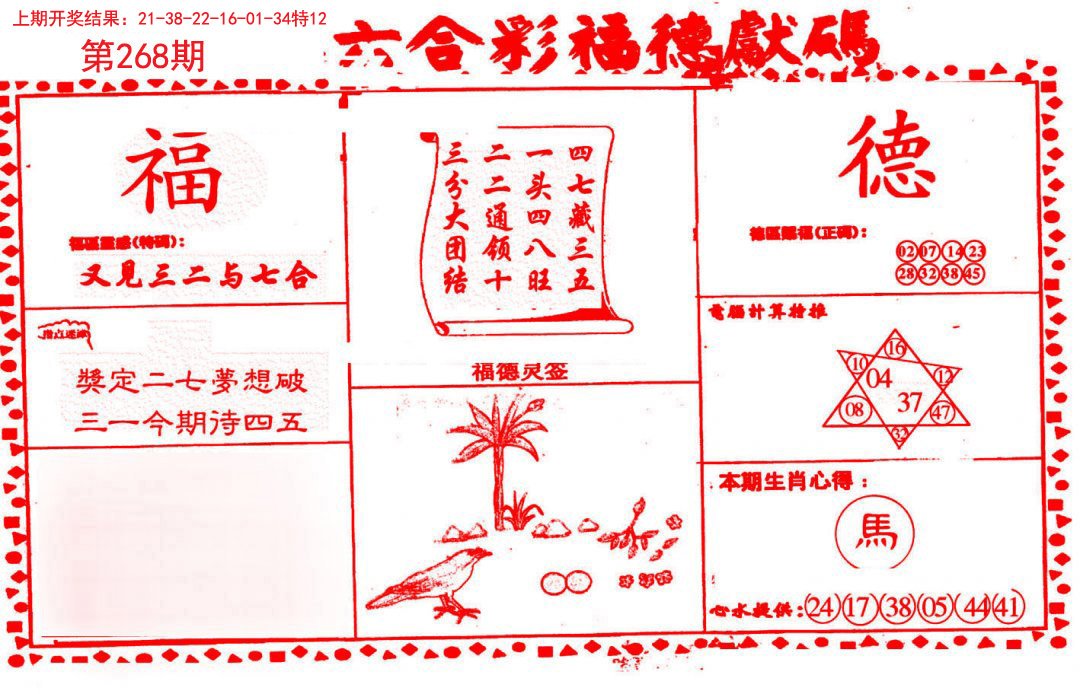 上期开奖结果：21-38-22-16-01-34特12
第268期
六合彩福德獻碼
福
福區靈感(特碼)：
又見三二与七合
獎定二七夢想破
三一今期待四五
四七藏三五
一头四八旺
二二通领十
三分大团结
福德灵签
德
德區賜福(正碼)：
02 07 14 23
28 32 38 45
電腦計算榜推
16
10 12
04
37
08 47
32
本期生肖心得：
馬
心水提供：24 17 38 05 44 41